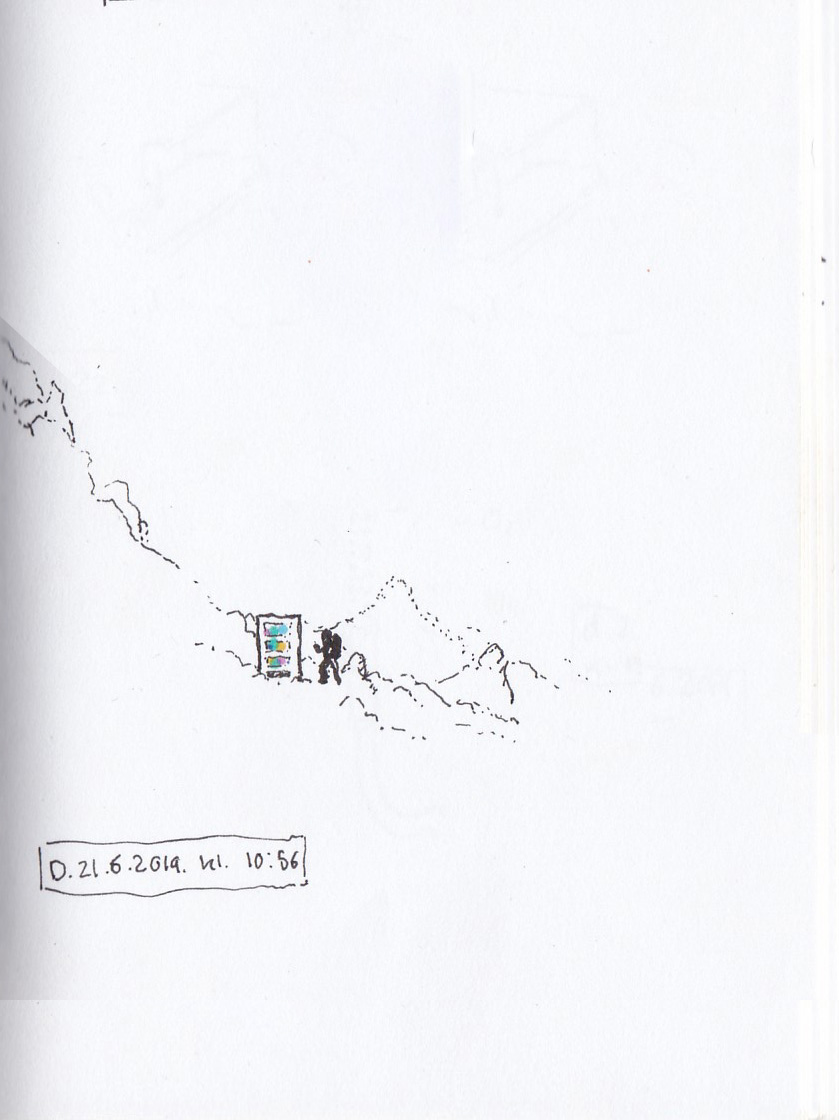 D. 21.6.2019. kl. 10:56